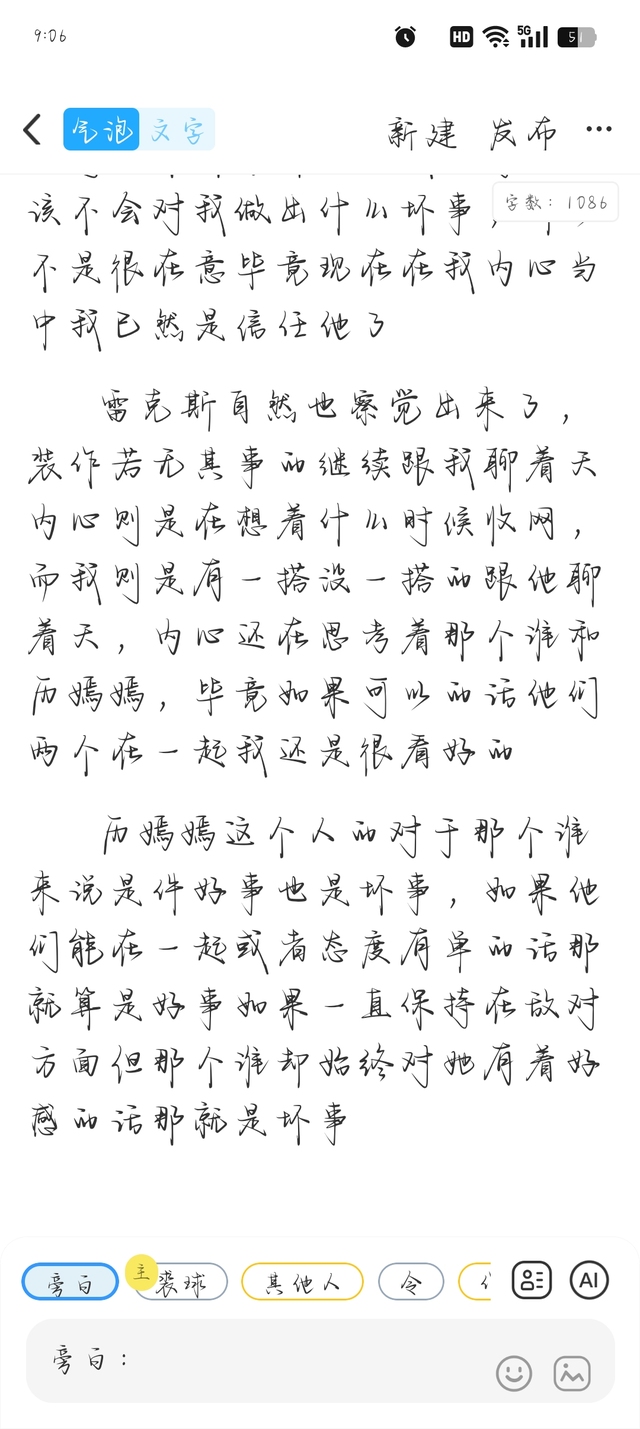 9:06
HD 5G 51
气泡 文字 新建 发布 ···
字数：1086
该不会对我做出什么坏事，
不是很在意毕竟现在在我内心当
中我已然是信任他了
雷克斯自然也察觉出来了，
装作若无其事的继续跟我聊着天
内心则是在想着什么时候收网，
而我则是有一搭没一搭的跟他聊
着天，内心还在思考着那个谁和
历嫣嫣，毕竟如果可以的话他们
两个在一起我还是很看好的
历嫣嫣这个人的对于那个谁
来说是件好事也是坏事，如果他
们能在一起或者态度有单的话那
就算是好事如果一直保持在敌对
方面但那个谁却始终对她有着好
感的话那就是坏事
旁白 主 裘球 其他人 令 AI
旁白：